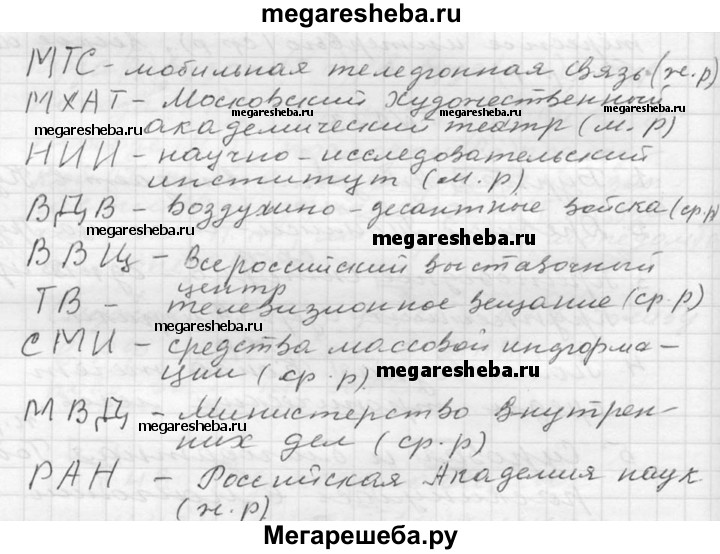 megaresheba.ru
МТС - мобильная телефонная связь (ж.р)
МХАТ - Московский Художественный
megaresheba.ru
megaresheba.ru
академический театр (м.р)
НИИ - научно-исследовательский
институт (м.р)
ВДВ - Воздушно-десантные войска (ср.р)
megaresheba.ru
megaresheba.ru
ВВЦ - Всероссийский выставочный
центр
ТВ - телевизионное вещание (ср.р)
megaresheba.ru
СМИ - средства массовой информа-
ции (ср.р)
megaresheba.ru
МВД - Министерство внутрен-
megaresheba.ru
них дел (ср.р)
РАН - Российская Академия наук
(ж.р)
Мегарешеба.ру